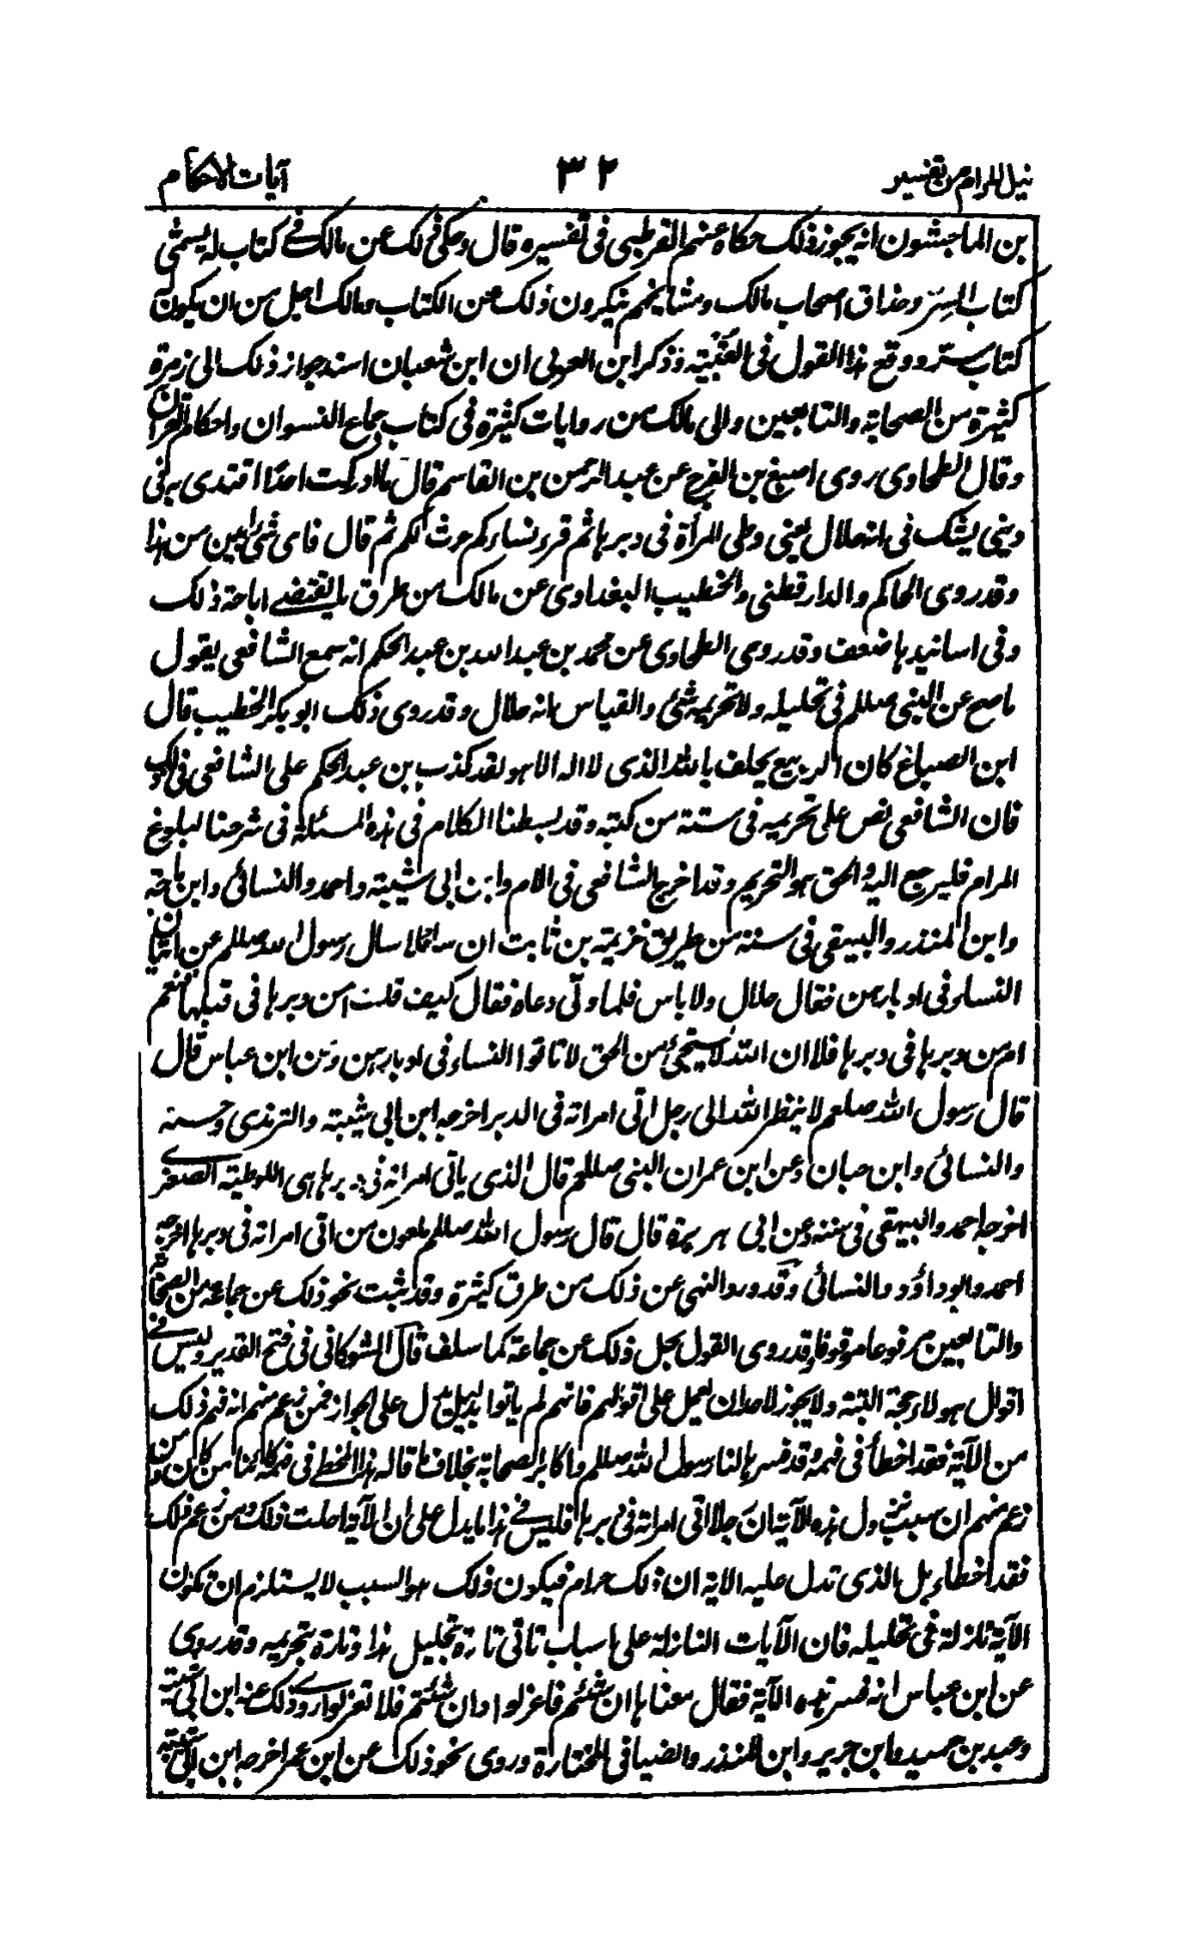 نيل المرام من تفسير ٣٢ آيات الاحكام
بن الماجشون انه يجوز ذلك حكاه عنهم القرطبى فى تفسيره قال وحكى ذلك عن مالك فے كتاب له يسمى
كتاب السِرّ وحذاق اصحاب مالك ومشايخهم ينكرون ذلك عن الكتاب ومالك اجل من ان يكون له
كتاب سر ووقع هذا القول فى العُتْبِيّة وذكر ابن العربى ان ابن شعبان اسند جواز ذلك الى زمرة
كثيرة من الصحابة والتابعين والى مالك من روايات كثيرة فى كتاب جماع النسوان واحكام القرآن
وقال الطحاوى روى اصبغ بن الفرج عن عبد الرحمن بن القاسم قال ما ادركت احدًا اقتدى به فى
دينى يشك فى انه حلال يعنى وطى المرأة فى دبرها ثم قرء نساءكم حرث لكم ثم قال فاى شئ ابين من هذا
وقد روى الحاكم والدارقطنى والخطيب البغدادى عن مالك من طرق ما يقتضے اباحة ذلك
وفى اسانيدها ضعف وقد روى الطحاوى عن محمد بن عبد الله بن عبد الحكم انه سمع الشافعى يقول
ماصح عن النبى صلعم فى تحليله ولا تحريمه شئ والقياس انه حلال وقد روى ذلك ابو بكر الخطيب قال
ابن الصباغ كان الربيع يحلف بالله الذى لا اله الا هو لقد كذب بن عبد الحكم على الشافعى فى ذلك
فان الشافعى نص على تحريمه فى ستة من كتبه وقد بسطنا الكلام فى هذه المسئلة فى شرحنا لبلوغ
المرام فليرجع اليه والحق هو التحريم وقد اخرج الشافعى فى الام وابن ابى شيبة واحمد والنسائى وابن ماجة
وابن المنذر والبيهقى فى سننه من طريق خزيمة بن ثابت ان سائلا سال رسول الله صللم عن اتيان
النساء فى ادبارهن فقال حلال ولا باس فلما ولّى دعاه فقال كيف قلت امن دبرها فى قبلها فنعم
ام من دبرها فى دبرها فلا ان الله لا يستحيى من الحق لا تاتوا النساء فى ادبارهن وعن ابن عباس قال
قال رسول الله صلعم لا ينظر الله الى رجل اتى امراته فى الدبر اخرجه ابن ابى شيبة والترمذى وحسنه
والنسائى وابن حبان وعن ابن عمر ان النبى صللم قال الذى ياتى امراته فى دبرها هى اللوطية الصغرے
اخرجه احمد والبيهقى فى سننه وعن ابى هريرة قال قال رسول الله صللم ملعون من اتى امراته فى دبرها اخرجه
احمد وابو داؤد والنسائى وقد ورد النهى عن ذلك من طرق كثيرة وقد ثبت نحو ذلك عن جماعة من الصحابة
والتابعين مرفوعا وموقوفا وقد روى القول بحل ذلك عن جماعة كما سلف قال الشوكانى فى فتح القدير وليس فے
اقوال هولاء حجة البتة ولا يجوز لاحد ان يعمل على اقوالهم فانهم لم ياتوا بدليل يدل على الجواز فمن زعم منهم انه فهم ذلك
من الآية فقد اخطأ فى فهمه وقد فسرها لنا رسول الله صللم واكابر الصحابة بخلاف ما قاله هذا المخطے فى فهمه كائنا من كان ومن
زعم منهم ان سبب نزول هذه الآية ان رجلا اتى امراته فى دبرها فليس فے هذا ما يدل على ان الآية احلت ذلك ومن زعم ذلك
فقد اخطاء بل الذى تدل عليه الاية ان ذلك حرام فيكون ذلك هو السبب لا يستلزم ان تكون
الآية نازلة فى تحليله فان الآيات النازلة على اسباب تاتى تارة بتحليل هذا وتارة بتحريمه وقد روى
عن ابن عباس انه فسر هذه الآية فقال معناها ان شئتم فاعزلوا وان شئتم فلا تعزلوا روے ذلك عنه ابن ابى شيبة
وعبد بن حميد وابن جرير وابن المنذر والضيا فى المختارة وروى نحو ذلك عن ابن عمر اخرجه ابن ابى شيبة